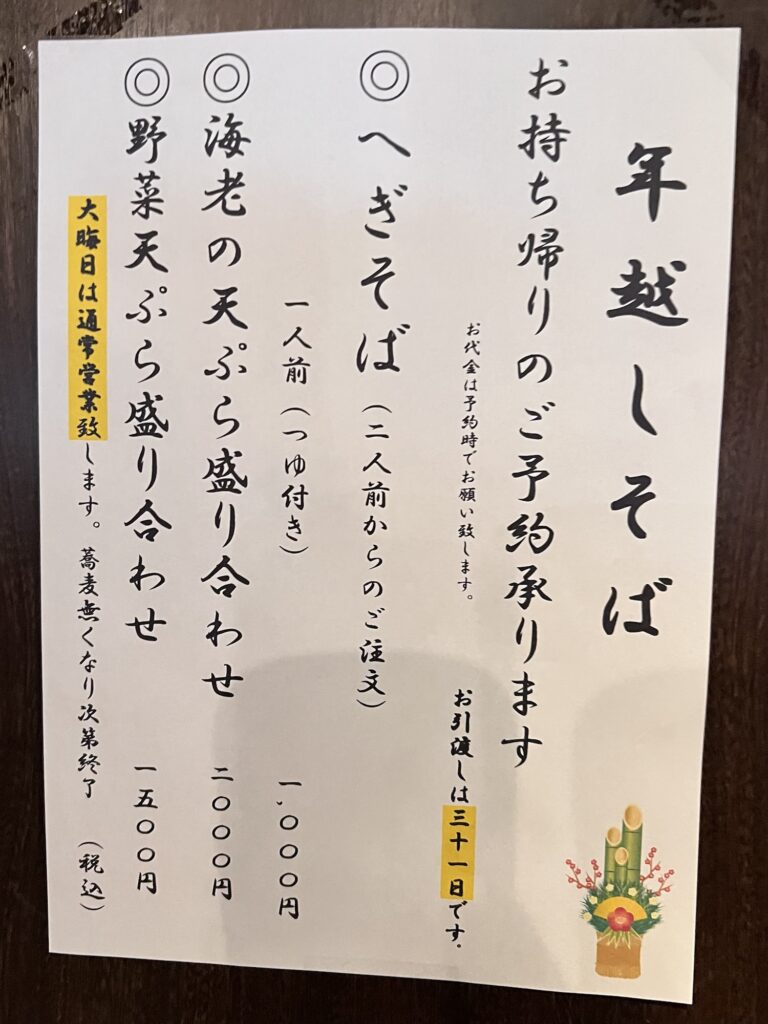 年越しそば
お持ち帰りのご予約承ります
お代金は予約時でお願い致します。
お引渡しは三十一日です。
◎へぎそば（二人前からのご注文）
一人前（つゆ付き）
一、〇〇〇円
◎海老の天ぷら盛り合わせ
二〇〇〇円
◎野菜天ぷら盛り合わせ
一五〇〇円
大晦日は通常営業致します。蕎麦無くなり次第終了
（税込）